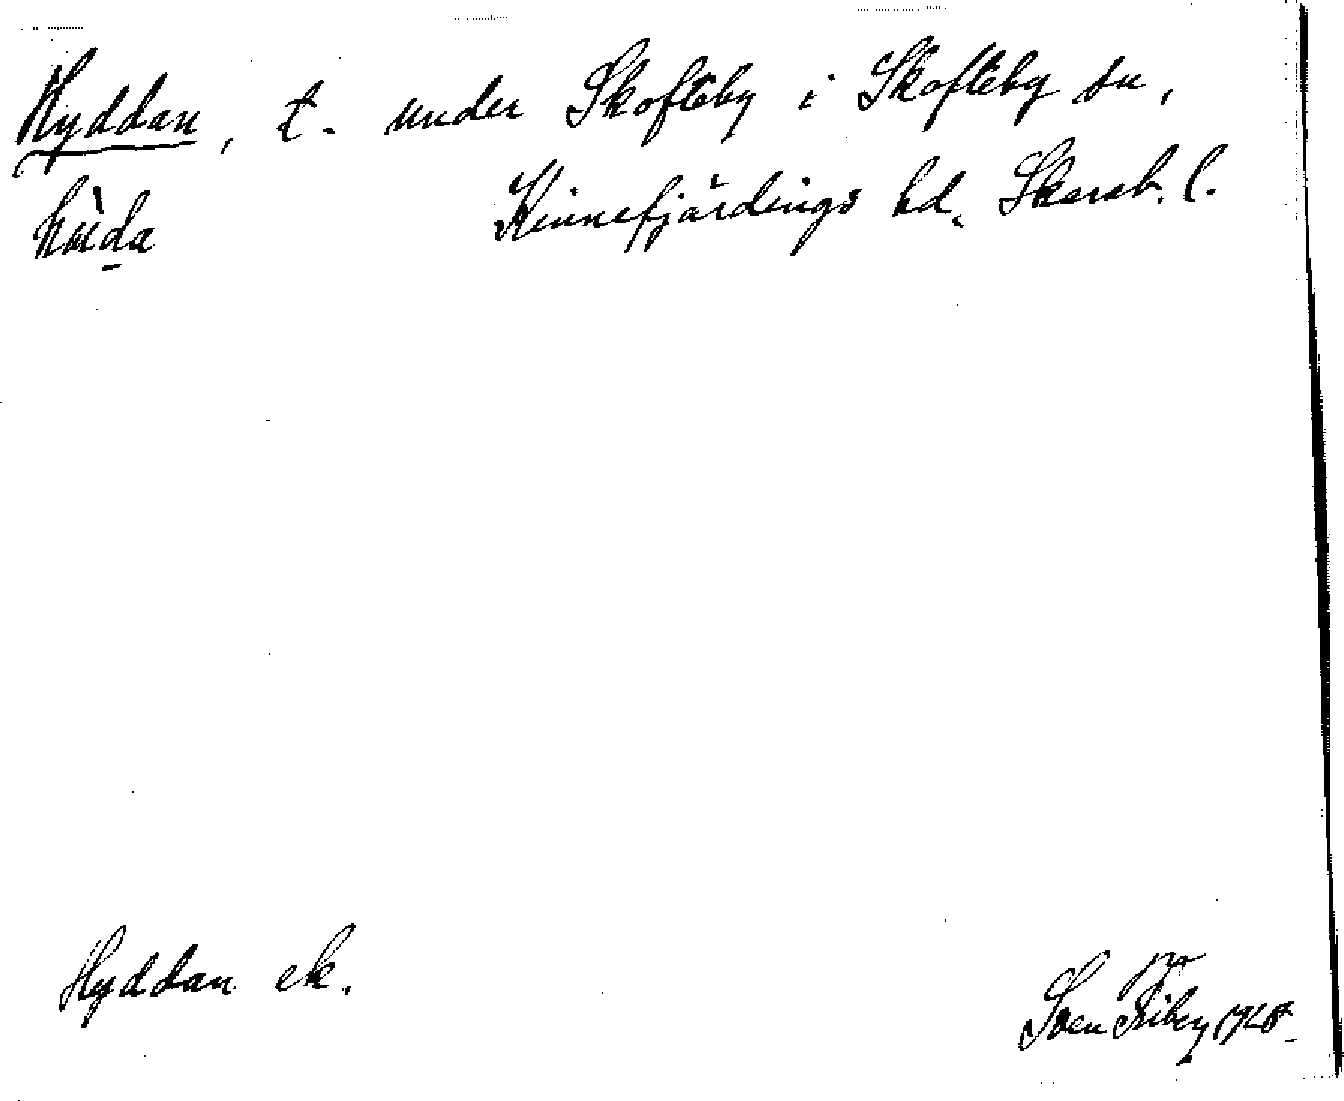 Hyddan, t. under Skofteby i Skofteby sn,
Kinnefjärdings hd. Skarab. l.
Hyddan ek.
Sven Fiby